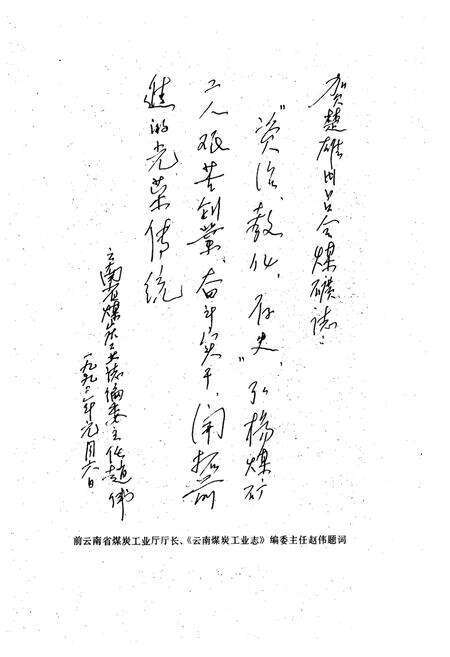 贺楚雄州吕合煤矿志：
“资治、教化、存史”，弘扬煤矿
工人艰苦创业、奋斗实干，开拓前
进的光荣传统
云南省煤炭工业志编委主任赵伟
一九九二年元月六日
前云南省煤炭工业厅厅长、《云南煤炭工业志》编委主任赵伟题词